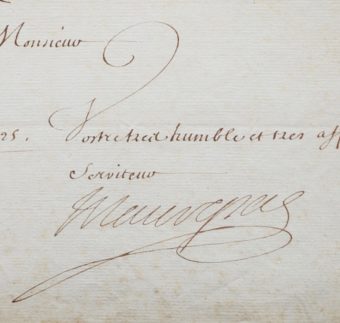 Monsieur
25. Vostre tres humble et tres aff
Serviteur